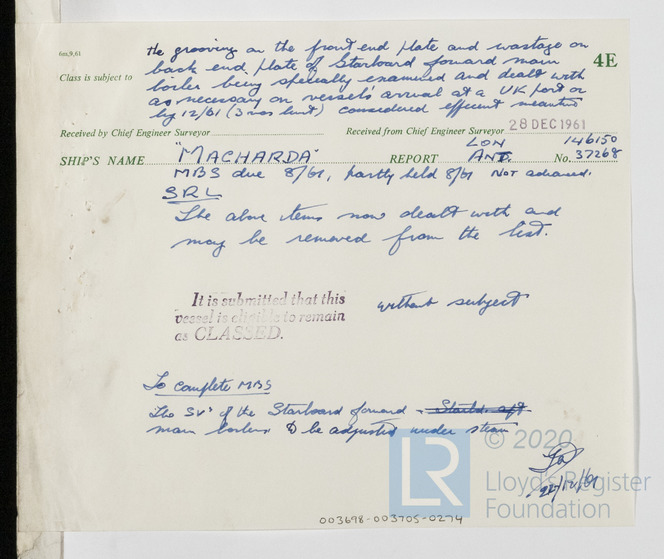 6m,9,61
the grooving on the front end plate and wastage on
back end plate of Starboard forward main
boiler being specially examined and dealt with
as necessary on vessel's arrival at a UK port or
by 12/61 (3 mos limit) considered efficient meantime
4E
Class is subject to
Received by Chief Engineer Surveyor
Received from Chief Engineer Surveyor 28 DEC 1961
SHIP'S NAME "MACHARDA" REPORT LON ANT. No. 146150 37268
MBS due 8/61, partly held 8/61 Not advanced.
SRL
The above items now dealt with and
may be removed from the list.
It is submitted that this
vessel is eligible to remain
as CLASSED.
without subject
To complete MBS
The SV's of the Starboard forward + Starbd. aft
main boilers to be adjusted under steam
22/12/61
LR
© 2020
Lloyd's Register
Foundation
003698-003705-0274